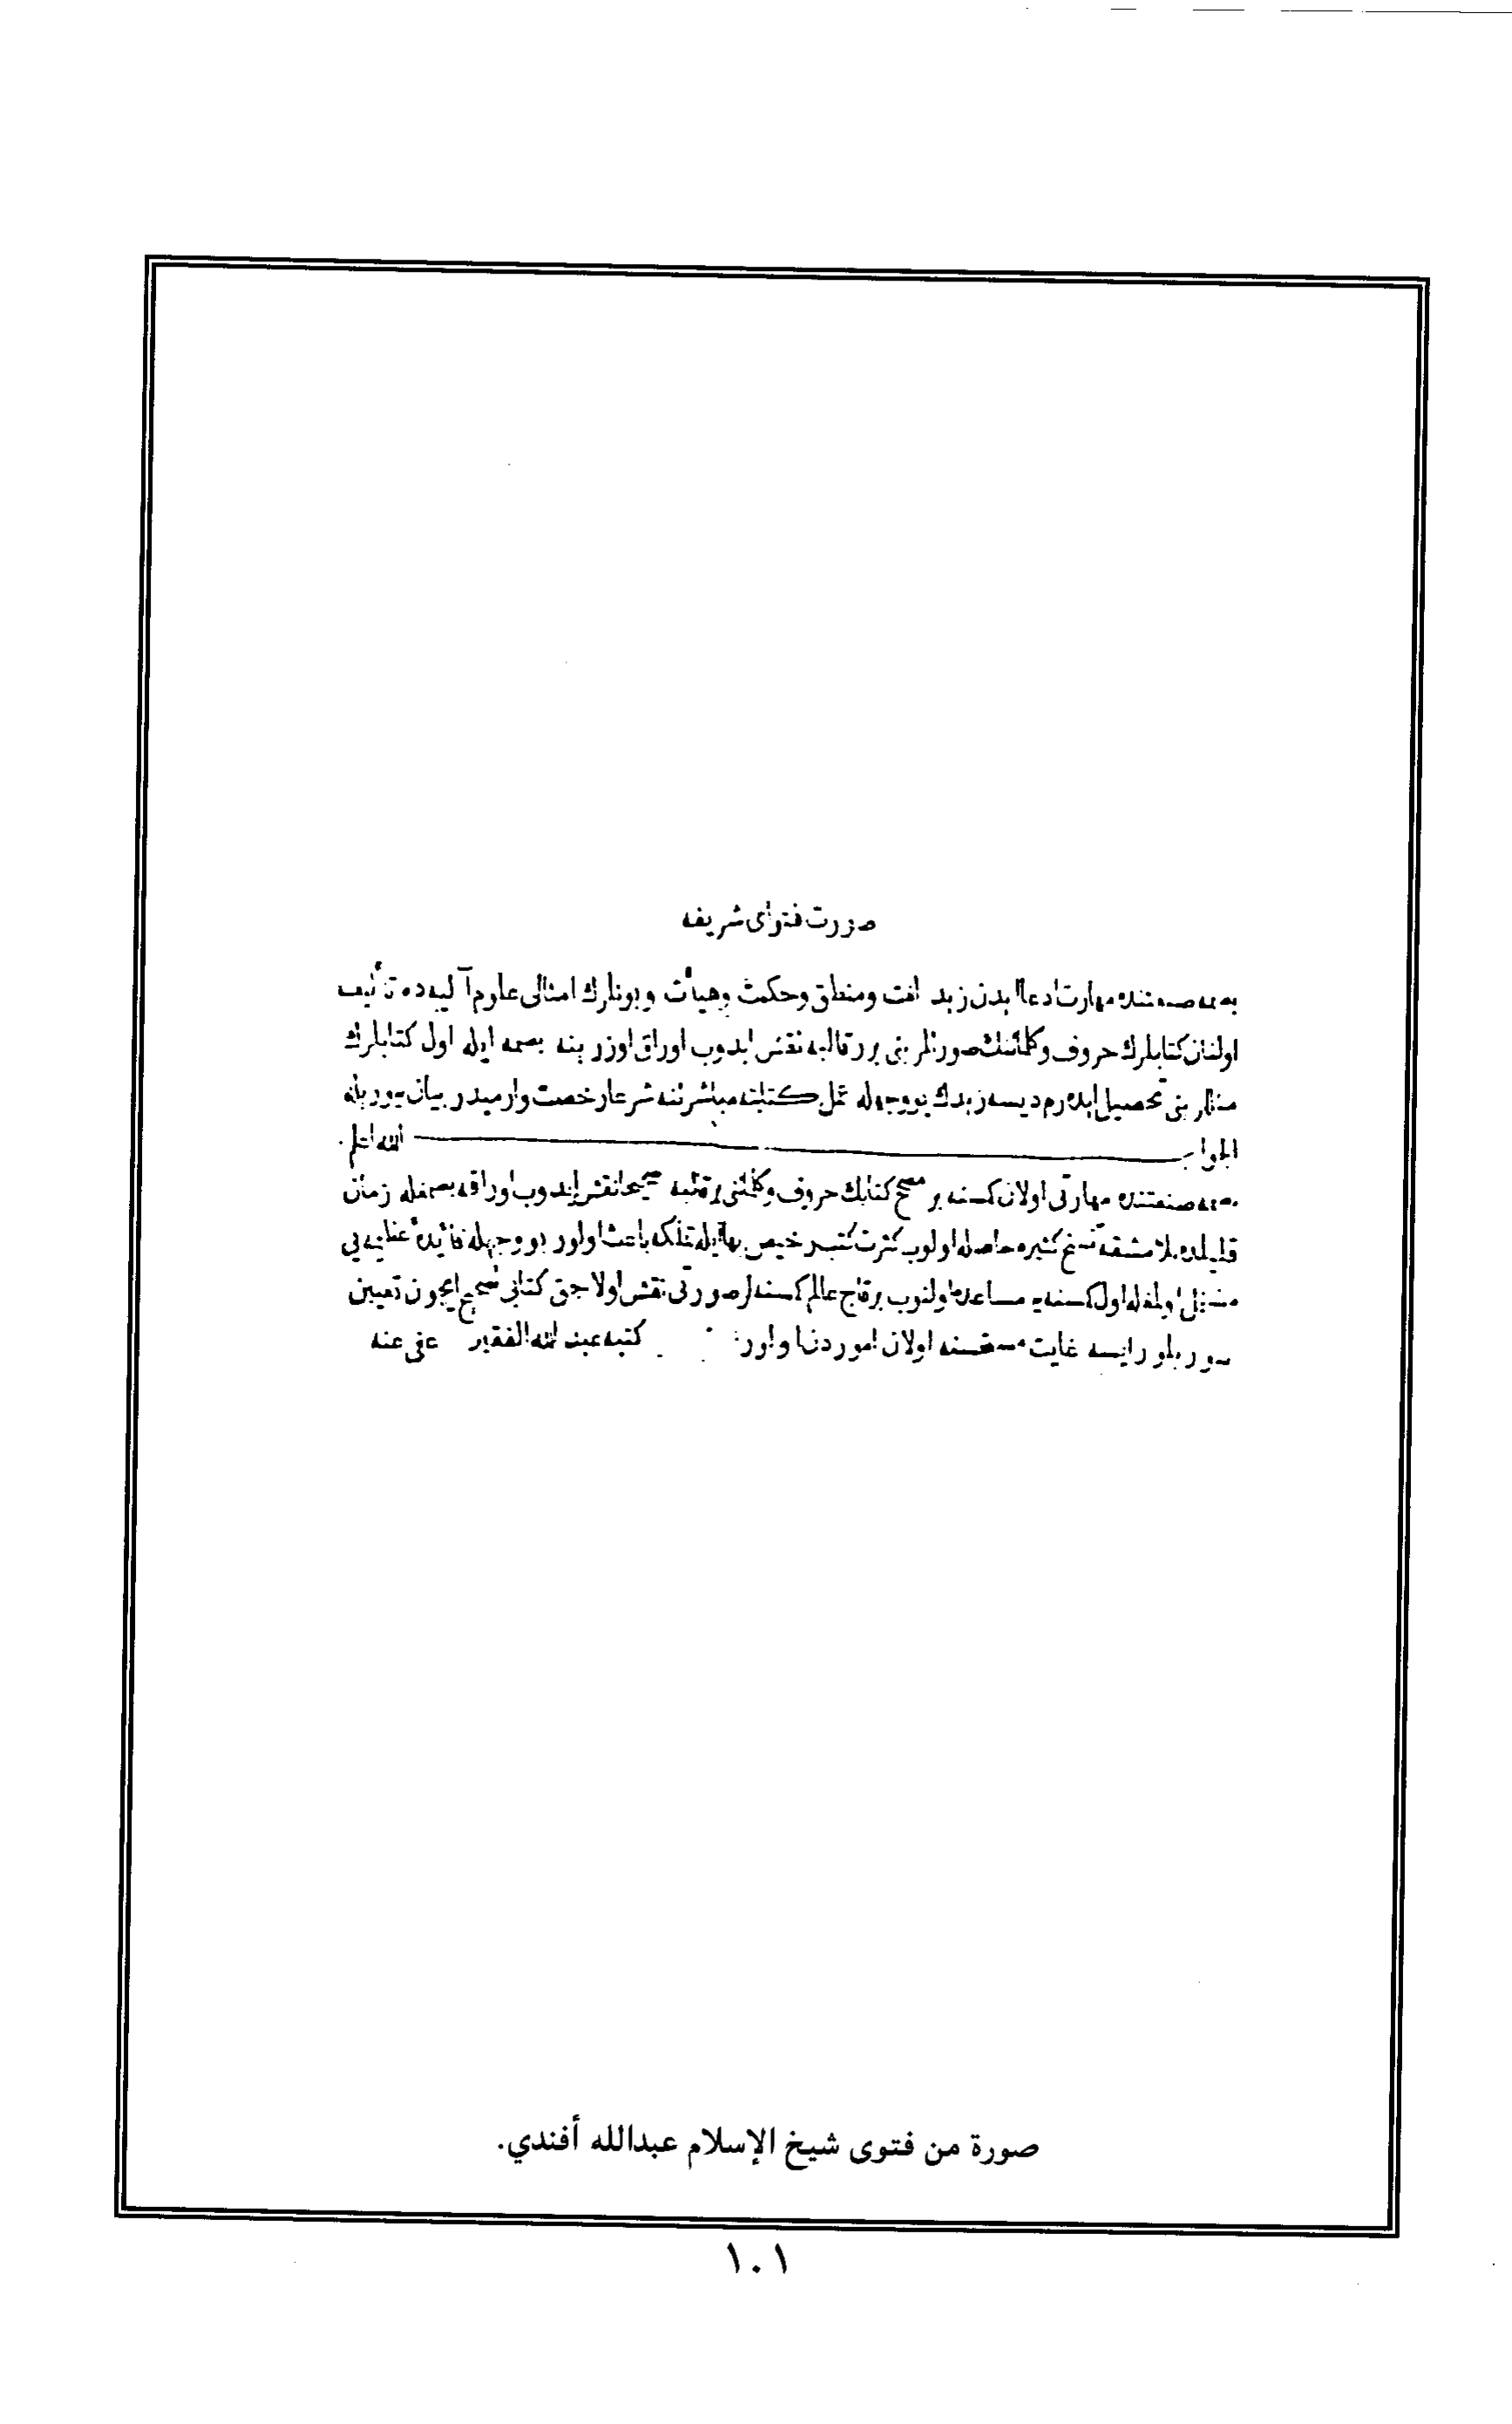 صورت فتوای شریفه
بصمه صنعتنده مهارت ادعا ایدن زید لغت ومنطق وحکمت وهیأت وبونلرك امثالی علوم آلیه ده تألیف
اولنان کتابلرك حروف وکلماتنك صورتلرینی بررقالبه نقش ایدوب اوراق اوزرینه بصمه ایله اول کتابلرك
مثللرینی تحصیل ایدەرم دیسه زیدك بووجهله عمل کتابته مباشرتنه شرعا رخصت وارمیدر بیان بیوریله
الجواب الله اعلم.
بصمه صنعتنده مهارتی اولان کسنه بر مصحح کتابك حروف وکلماتنی برقالبه صحیحا نقش ایدوب اوراقه بصمغله زمان
قلیلده بلا مشقة نسخ کثیره حاصله اولوب کثرت کتب رخیص بها ایله تملکه باعث اولور بو وجهله فائدهٔ عظیمه یی
مشتمل اولمغله اول کسنه یه مساعده اولنوب برقاج عالم کسنه لر صورتی نقش اولاجق کتابی تصحیح ایچون تعیین
بیوریلور ایسه غایت مستحسنه اولان اموردن اولور کتبه عبد الله الفقیر عفی عنه
صورة من فتوى شيخ الإسلام عبدالله أفندي.
١٠١